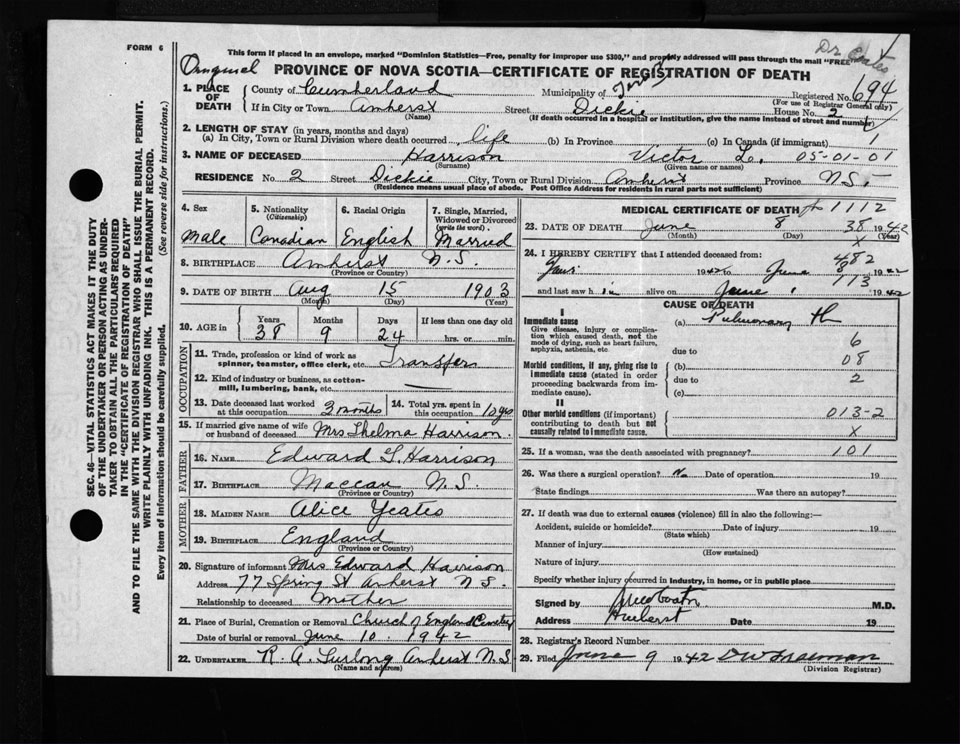 FORM 6
This form if placed in an envelope, marked "Dominion Statistics—Free, penalty for improper use $300," and properly addressed will pass through the mail "FREE"
Dr Coates
PROVINCE OF NOVA SCOTIA—CERTIFICATE OF REGISTRATION OF DEATH
1. PLACE OF DEATH
County of Cumberland Municipality of Registered No. 694
(For use of Registrar General only)
If in City or Town Amherst Street Dickie House No. 2
(Name) (If death occurred in a hospital or institution, give the name instead of street and number)
2. LENGTH OF STAY (in years, months and days)
(a) In City, Town or Rural Division where death occurred life (b) In Province (c) In Canada (if immigrant) 1
3. NAME OF DECEASED Harrison Victor L. 05-01-01
(Surname) (Given name or names)
RESIDENCE No. 2 Street Dickie City, Town or Rural Division Amherst Province N.S.
(Residence means usual place of abode. Post Office Address for residents in rural parts not sufficient)
4. Sex 5. Nationality (Citizenship) 6. Racial Origin 7. Single, Married, Widowed or Divorced (write the word)
Male Canadian English Married
8. BIRTHPLACE Amherst N.S.
(Province or Country)
9. DATE OF BIRTH Aug 15 1903
(Month) (Day) (Year)
10. AGE in Years Months Days If less than one day old
38 9 24 hrs. or min.
OCCUPATION
11. Trade, profession or kind of work as spinner, teamster, office clerk, etc. Transfer
12. Kind of industry or business, as cotton-mill, lumbering, bank, etc.
13. Date deceased last worked at this occupation 3 months 14. Total yrs. spent in this occupation 10 yrs
15. If married give name of wife or husband of deceased Mrs Thelma Harrison.
FATHER
16. NAME Edward Harrison
17. BIRTHPLACE Maccan N.S.
(Province or Country)
MOTHER
18. MAIDEN NAME Alice Yeates
19. BIRTHPLACE England
(Province or Country)
20. Signature of informant Mrs Edward Harrison
Address 77 Spring St Amherst N S.
Relationship to deceased Mother
21. Place of Burial, Cremation or Removal Church of England Cemetery
Date of burial or removal June 10. 1942
22. UNDERTAKER R. A. Furlong Amherst N S
(Name and address)
MEDICAL CERTIFICATE OF DEATH 1112
23. DATE OF DEATH June 8 38 1942
(Month) (Day) (Year)
x
24. I HEREBY CERTIFY that I attended deceased from: 482
Jan: 1942 to June 8 1942
113
and last saw h im alive on June 1942
CAUSE OF DEATH
I
Immediate cause (a) Pulmonary tb
Give disease, injury or complication which caused death, not the mode of dying, such as heart failure, asphyxia, asthenia, etc.
due to 6
Morbid conditions, if any, giving rise to immediate cause (stated in order proceeding backwards from immediate cause).
(b) 08
due to 2
(c)
II
Other morbid conditions (if important) contributing to death but not causally related to immediate cause.
013-2
x
25. If a woman, was the death associated with pregnancy? 101
26. Was there a surgical operation? No Date of operation 19
State findings Was there an autopsy?
27. If death was due to external causes (violence) fill in also the following:—
Accident, suicide or homicide? Date of injury 19
(State which)
Manner of injury
(How sustained)
Nature of injury
Specify whether injury occurred in industry, in home, or in public place
Signed by M.D.
Address Amherst Date 19
28. Registrar's Record Number
29. Filed June 9 1942 D W Freeman
(Division Registrar)
SEC. 46—VITAL STATISTICS ACT MAKES IT THE DUTY
OF THE UNDERTAKER OR PERSON ACTING AS UNDER-
TAKER TO OBTAIN ALL THE PARTICULARS REQUIRED
IN THE "CERTIFICATE OF REGISTRATION OF DEATH"
AND TO FILE THE SAME WITH THE DIVISION REGISTRAR WHO SHALL ISSUE THE BURIAL PERMIT.
WRITE PLAINLY WITH UNFADING INK. THIS IS A PERMANENT RECORD.
Every item of information should be carefully supplied. (See reverse side for instructions.)